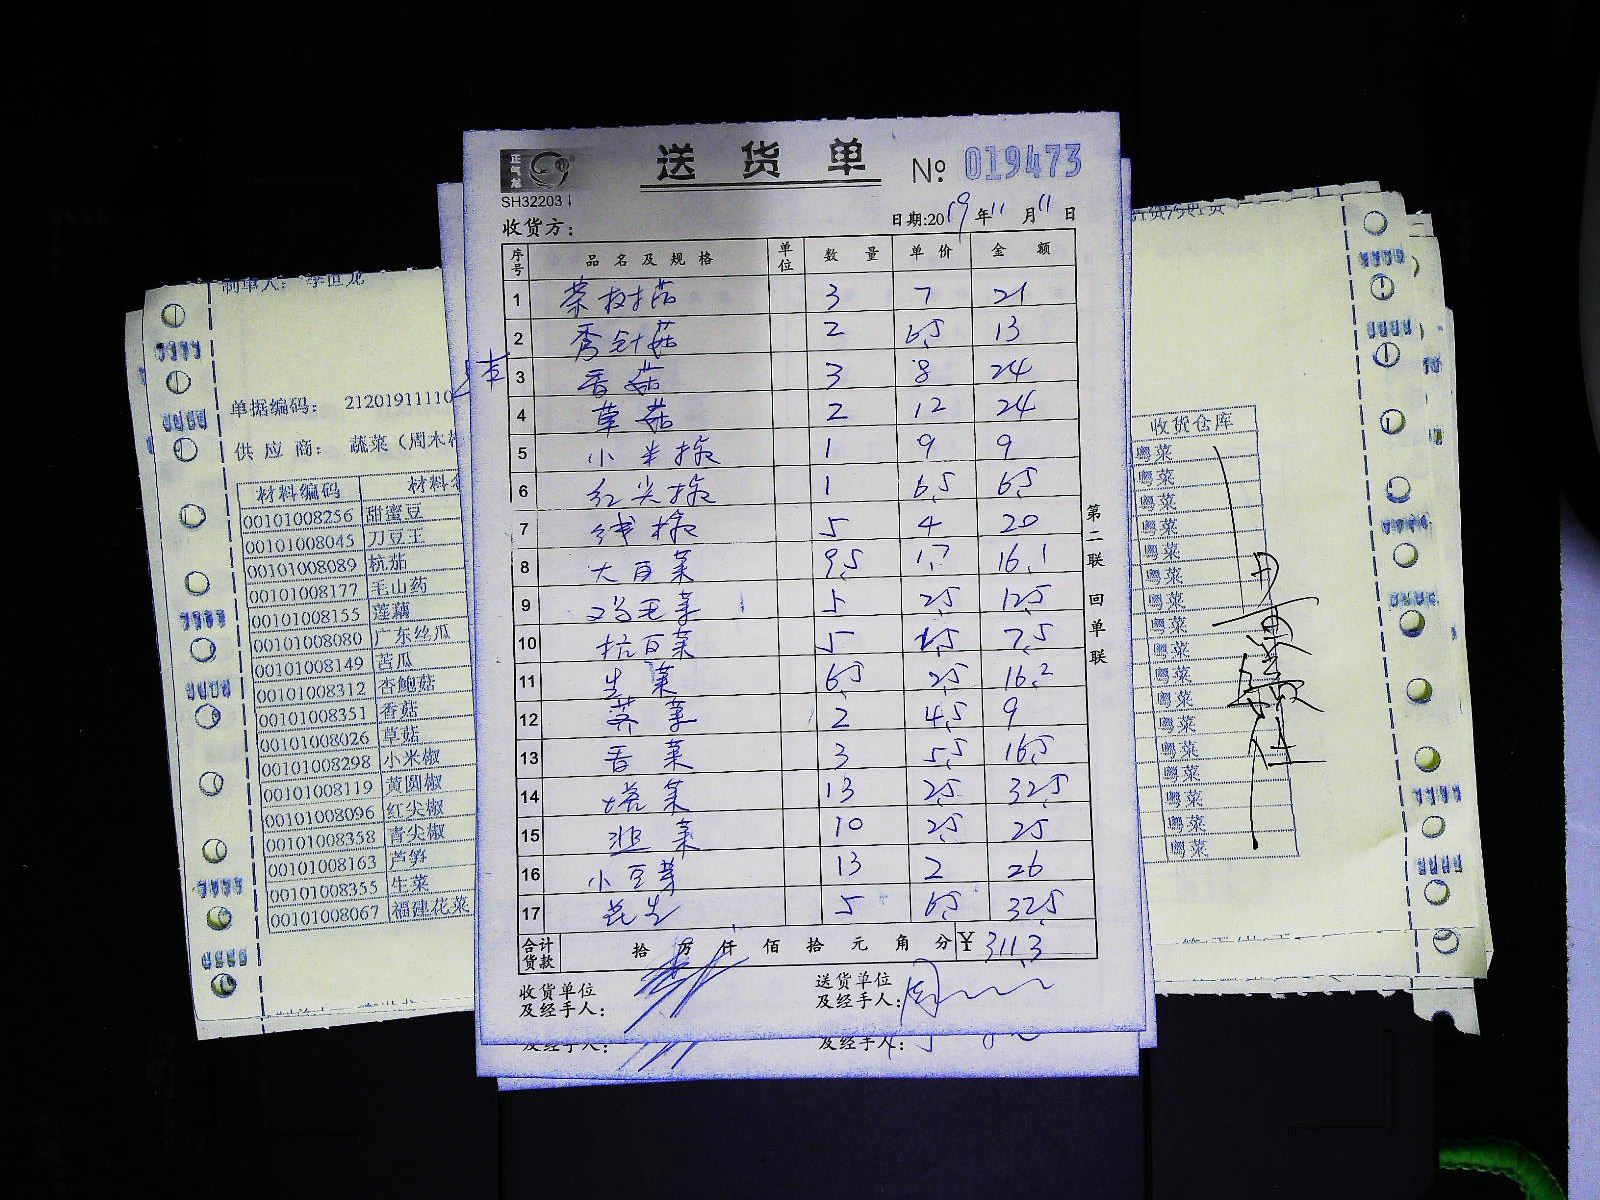 正气龙
送货单
№ 019473
SH32203
收货方:
日期:2019年11月11日
序号 品名及规格 单位 数量 单价 金额
1 茶树菇 3 7 21
2 秀针菇 2 6.5 13
3 香菇 3 8 24
4 草菇 2 12 24
5 小米椒 1 9 9
6 红尖椒 1 6.5 6.5
7 线椒 5 4 20
8 大百菜 9.5 1.7 16.1
9 鸡毛菜 5 2.5 12.5
10 杭百菜 5 1.5 7.5
11 生菜 6.5 2.5 16.2
12 荠菜 2 4.5 9
13 香菜 3 5.5 16.5
14 塔菜 13 2.5 32.5
15 韭菜 10 2.5 25
16 小豆芽 13 2 26
17 花生 5 6.5 32.5
合计货款 拾万仟佰拾元角分 ¥ 311.3
收货单位及经手人:
送货单位及经手人: 周
第二联 回单联
及经手人:
及经手人:
制单人: 李世龙
单据编码: 21201911110
供应商: 蔬菜(周木
材料编码
00101008256 甜蜜豆
00101008045 刀豆王
00101008089 杭茄
00101008177 毛山药
00101008155 莲藕
00101008080 广东丝瓜
00101008149 苦瓜
00101008312 杏鲍菇
00101008351 香菇
00101008026 草菇
00101008298 小米椒
00101008119 黄圆椒
00101008096 红尖椒
00101008358 青尖椒
00101008163 芦笋
00101008355 生菜
00101008067 福建花菜
收货仓库
粤菜
粤菜
粤菜
粤菜
粤菜
粤菜
粤菜
粤菜
粤菜
粤菜
粤菜
粤菜
粤菜
粤菜
粤菜
粤菜
粤菜